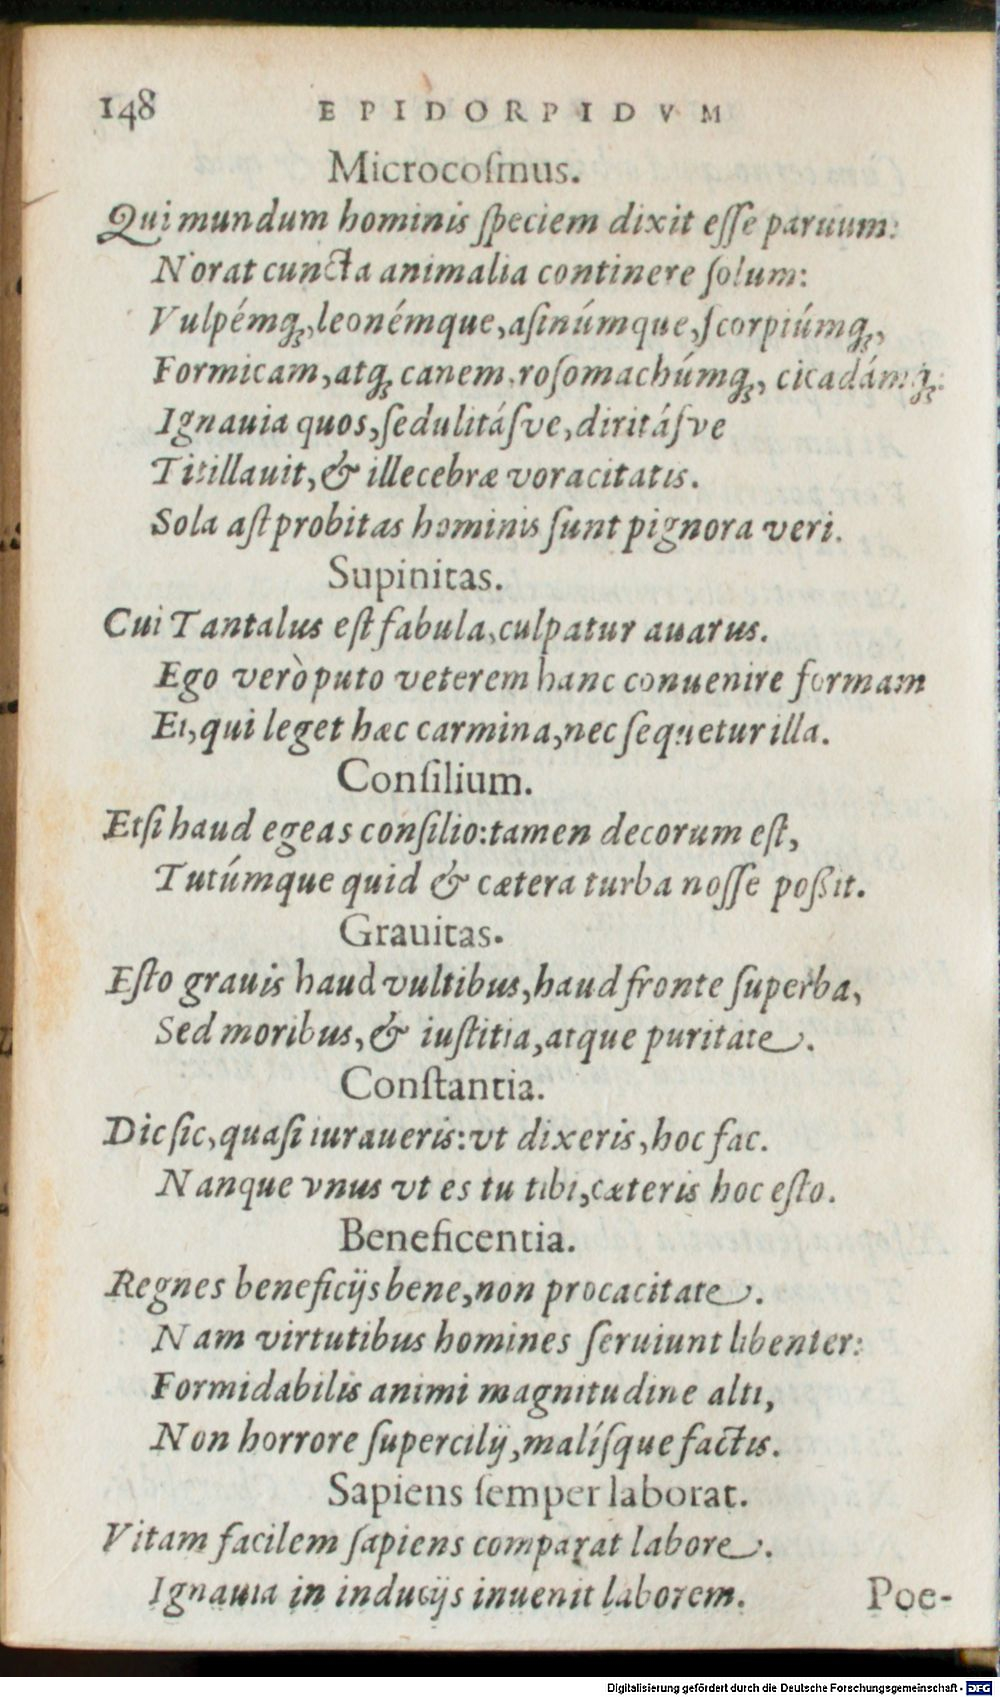 148 EPIDORPIDVM
Microcoſmus.
Qui mundum hominis ſpeciem dixit eſſe paruum:
Norat cuncta animalia continere ſolum:
Vulpémq́ꝫ, leonémque, aſinúmque, ſcorpiúmq́ꝫ,
Formicam, atqꝫ canem, roſomachúmq́ꝫ, cicadámq́ꝫ:
Ignauia quos, ſedulitáſve, diritáſve
Titillauit, & illecebræ voracitatis.
Sola aſt probitas hominis ſunt pignora veri.
Supinitas.
Cui Tantalus eſt fabula, culpatur auarus.
Ego verò puto veterem hanc conuenire formam
Ei, qui leget hæc carmina, nec ſequetur illa.
Conſilium.
Etſi haud egeas conſilio: tamen decorum eſt,
Tutúmque quid & cætera turba noſſe poßit.
Grauitas.
Eſto grauis haud vultibus, haud fronte ſuperba,
Sed moribus, & iuſtitia, atque puritate.
Conſtantia.
Dic ſic, quaſi iuraueris: vt dixeris, hoc fac.
Nanque vnus vt es tu tibi, cæteris hoc eſto.
Beneficentia.
Regnes beneficijs bene, non procacitate.
Nam virtutibus homines ſeruiunt libenter:
Formidabilis animi magnitudine alti,
Non horrore ſupercilij, malíſque factis.
Sapiens ſemper laborat.
Vitam facilem ſapiens comparat labore.
Ignauia in inducijs inuenit laborem.
Poe-
Digitalisierung gefördert durch die Deutsche Forschungsgemeinschaft - DFG